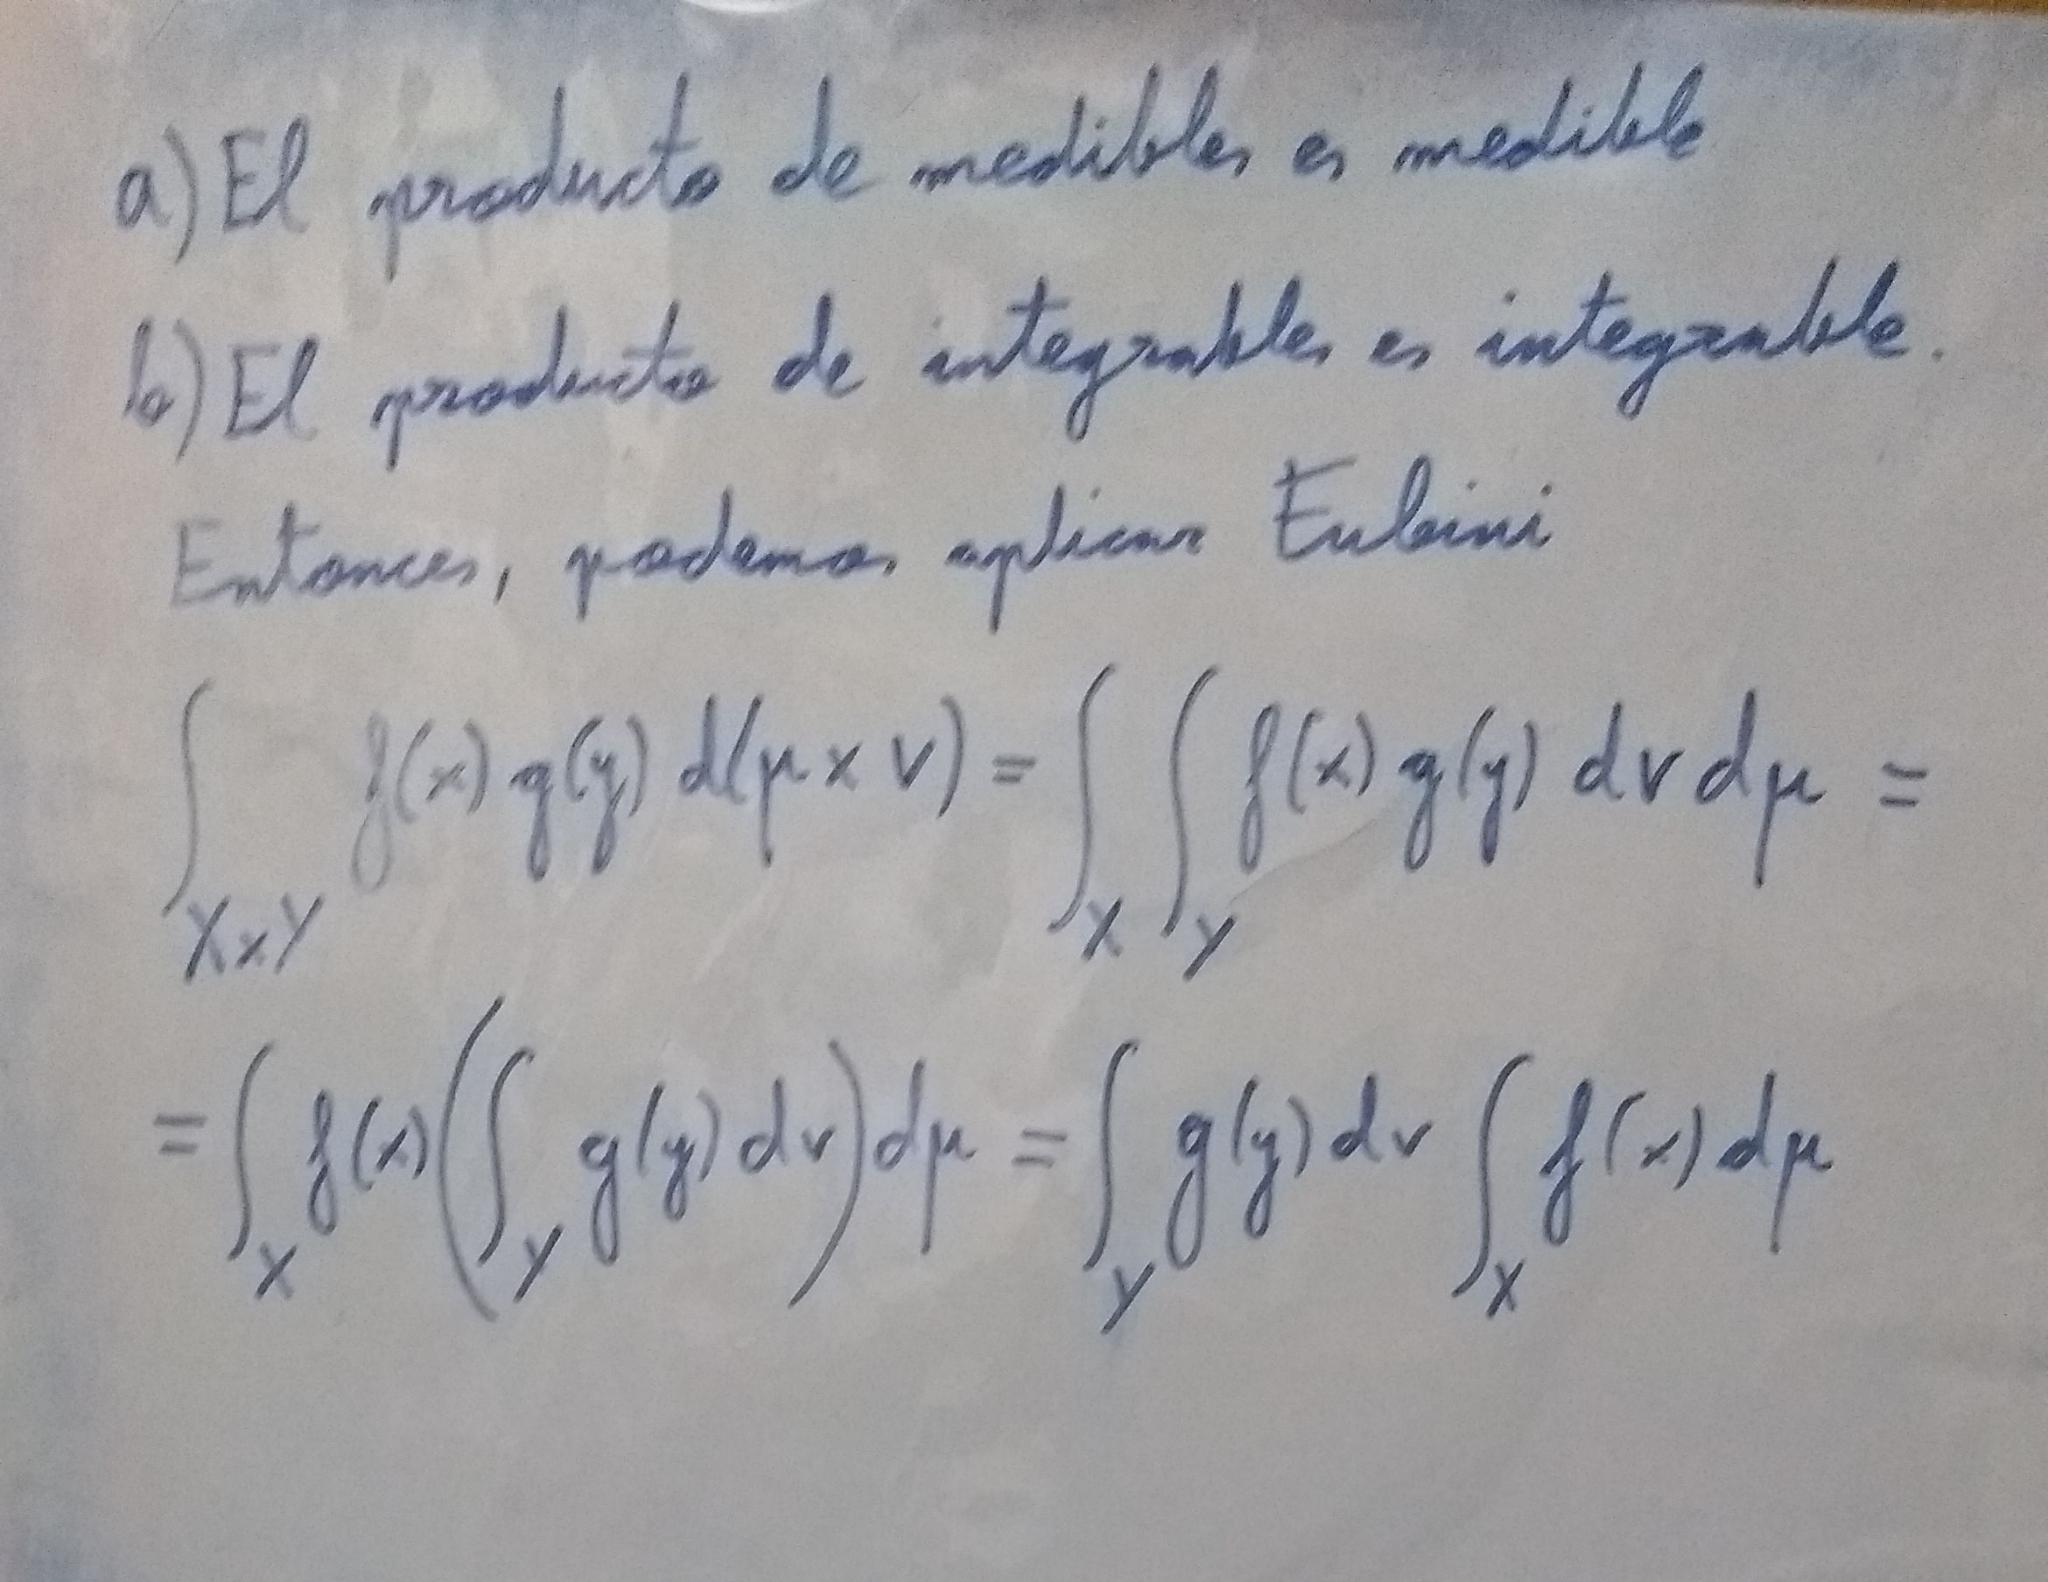 a) El producto de medibles es medible
b) El producto de integrables es integrable.
Entonces, podemos aplicar Fubini
∫_{X×Y} f(x) g(y) d(μ × ν) = ∫_X ∫_Y f(x) g(y) dν dμ =
= ∫_X f(x) (∫_Y g(y) dν) dμ = ∫_Y g(y) dν ∫_X f(x) dμ